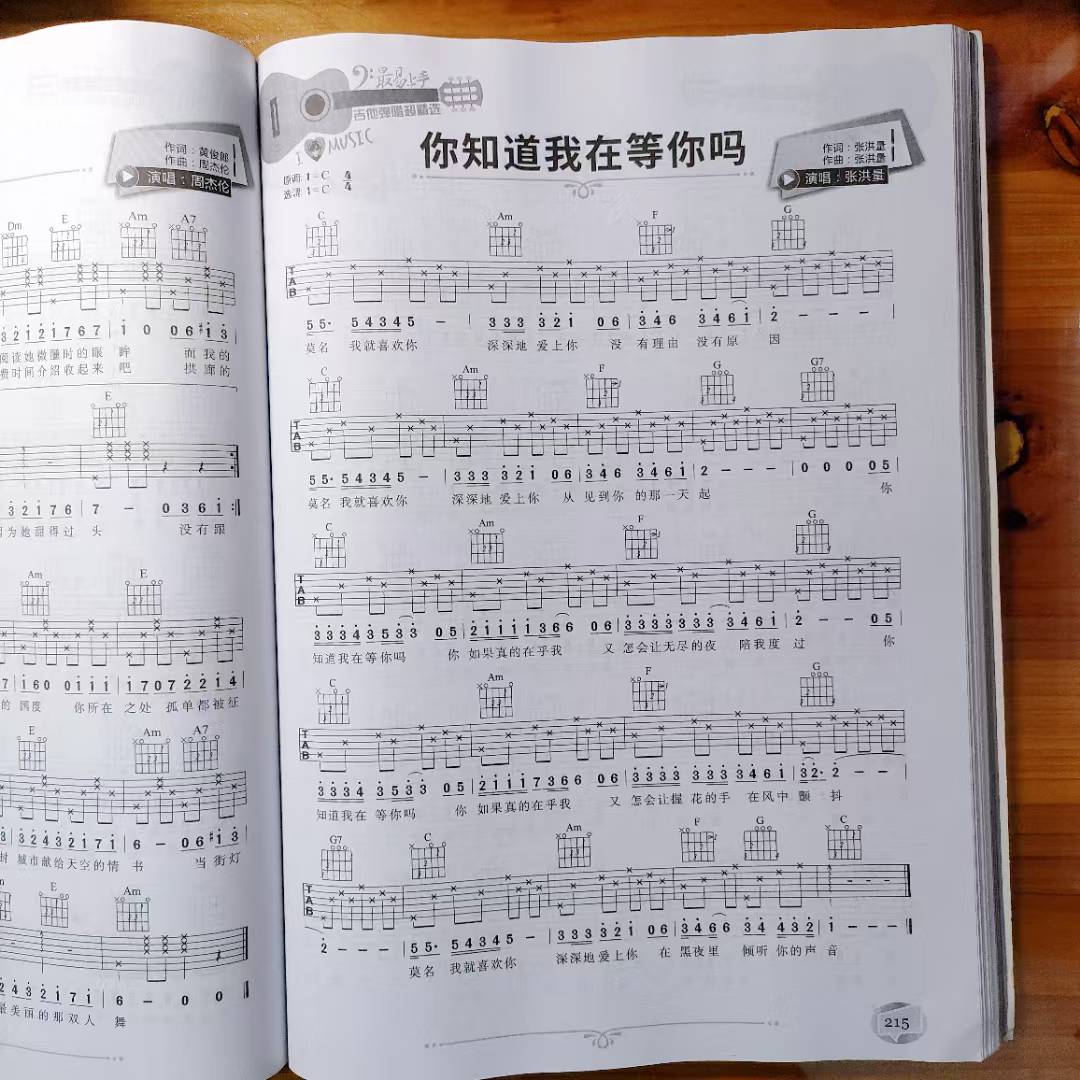 作词：黄俊郎
作曲：周杰伦
演唱：周杰伦
Dm E Am A7
阅读她微醺时的眼 眸 而我的
费时间介绍收起来 吧 拱廊的
E
因为她甜得过 头 没有跟
Am E
的 国度 你所在 之处 孤单都被征
E Am A7
封 城市献给天空的情 书 当街灯
E Am
最美丽的那双人 舞
最易上手
吉他弹唱超精选
I MUSIC
你知道我在等你吗
原调：1=C 4/4
选调：1=C 4/4
作词：张洪量
作曲：张洪量
演唱：张洪量
C Am F G
TAB
5 5· 5 4 3 4 5 － | 3 3 3 3 2 1 0 6 | 3 4 6 3 4 6 1 | 2 － － －
莫名 我就喜欢你 深深地 爱上你 没 有理由 没有原 因
C Am F G G7
TAB
5 5· 5 4 3 4 5 － | 3 3 3 3 2 1 0 6 | 3 4 6 3 4 6 1 | 2 － － － | 0 0 0 0 5
莫名 我就喜欢你 深深地 爱上你 从 见到你 的那一天 起 你
C Am F G
TAB
3 3 3 4 3 5 3 3 0 5 | 2 1 1 1 1 3 6 6 0 6 | 3 3 3 3 3 3 3 3 4 6 1 | 2 － － 0 5
知道我在等你吗 你 如果真的在乎我 又 怎会让无尽的夜 陪我度 过 你
C Am F G
TAB
3 3 3 4 3 5 3 3 0 5 | 2 1 1 1 7 3 6 6 0 6 | 3 3 3 3 3 3 3 3 4 6 1 | 3 2· 2 － －
知道我在 等你吗 你 如果真的在乎我 又 怎会让握 花的手 在风中 颤 抖
G7 C Am F G C
TAB
2 － － － | 5 5· 5 4 3 4 5 － | 3 3 3 3 2 1 0 6 | 3 4 6 6 3 4 4 3 2 | 1 － － －
莫名 我就喜欢你 深深地爱上你 在 黑夜里 倾听 你的声 音
215